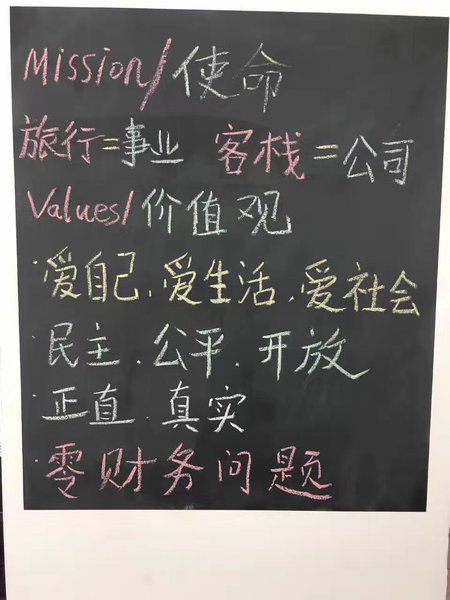 Mission/使命
旅行=事业 客栈=公司
Values/价值观
·爱自己.爱生活.爱社会
·民主.公平.开放
·正直.真实
·零财务问题